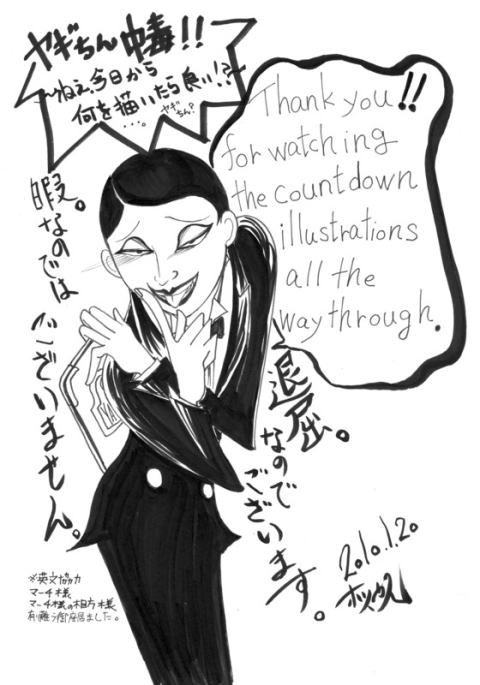 ヤギちん中毒!!
ねぇ、今日から
何を描いたら良い!?
…。ヤギちん?
Thank you!!
for watching
the countdown
illustrations
all the
way through.
暇。なのでは
ございません。
退屈。
なので
ございます。
2010.1.20
※英文協力
マーチ様
マーチ様の相方様
有難う御座居ました。